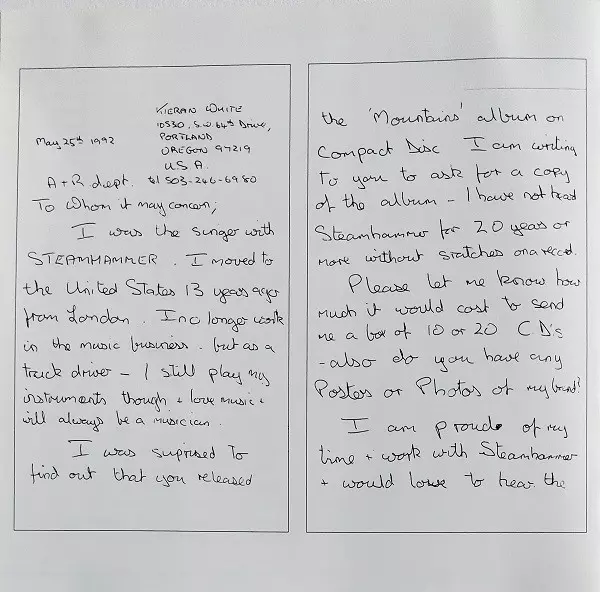 KIERAN WHITE
10530, S.W. 64th Drive,
May 25th 1992
PORTLAND
OREGON 97219
U.S.A.
A+R dept. tel 503-246-6980
To Whom it may concern;
I was the singer with
STEAMHAMMER. I moved to
the United States 13 years ago
from London. I no longer work
in the music business. but as a
truck driver - I still play my
instruments though + love music +
will always be a musician.
I was suprised to
find out that you released
the 'Mountains' album on
Compact Disc I am writing
to you to ask for a copy
of the album - I have not heard
Steamhammer for 20 years or
more without sratches on a record.
Please let me know how
much it would cost to send
me a box of 10 or 20 CD's
- also do you have any
Posters or Photos of my band?
I am proud of my
time + work with Steamhammer
+ would love to hear the